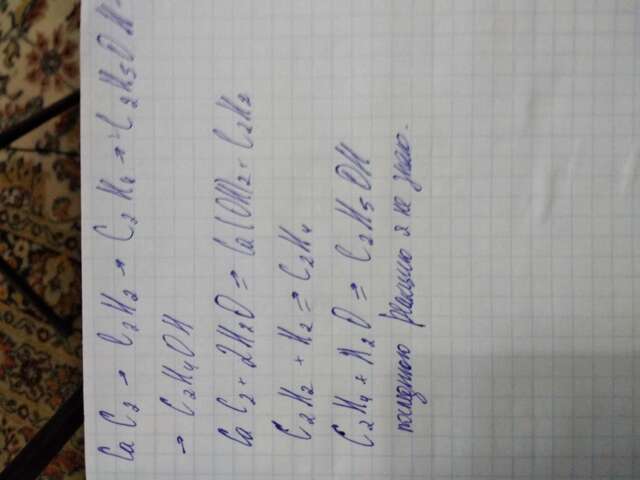 CaC2 → C2H2 → C2H4 → C2H5OH →
→ C2H4OH
CaC2 + 2H2O = Ca(OH)2 + C2H2
C2H2 + H2 = C2H4
C2H4 + H2O = C2H5OH
последнюю реакцию я не знаю.